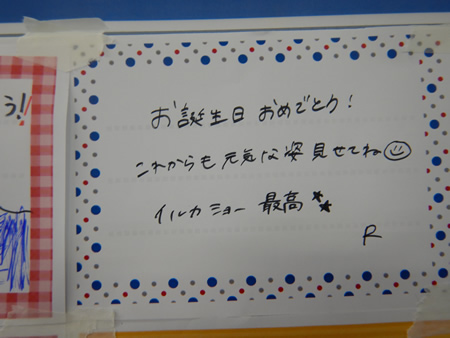 う!!
お誕生日 おめでとう!
これからも 元気な姿 見せてね☺
イルカショー 最高 ★★
R